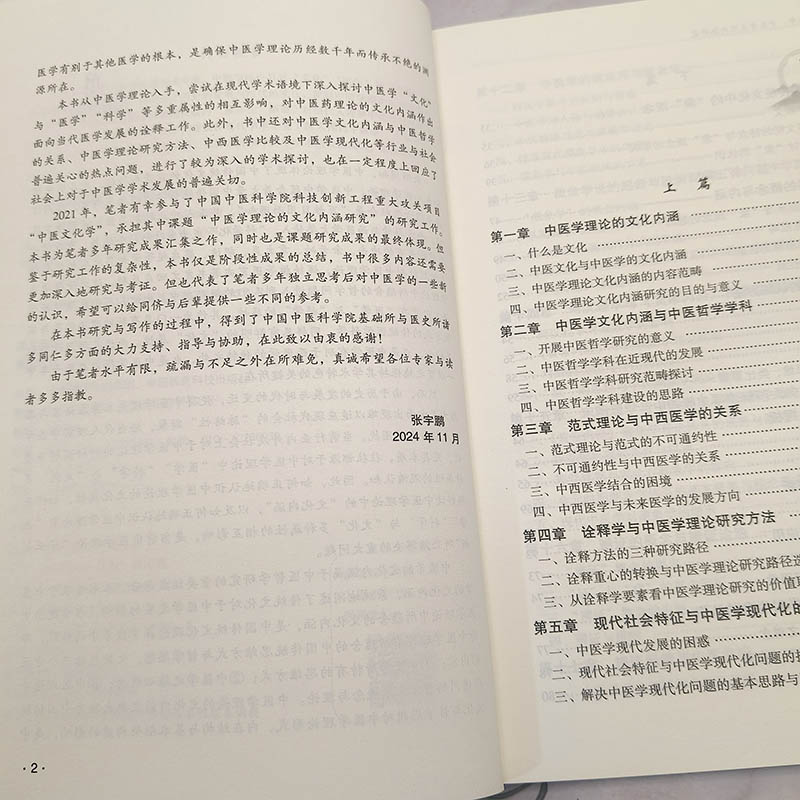 医学有别于其他医学的根本，是确保中医学理论历经数千年而传承不绝的渊
源所在。
本书从中医学理论入手，尝试在现代学术语境下深入探讨中医学“文化”
与“医学”“科学”等多重属性的相互影响，对中医药理论的文化内涵作出
面向当代医学发展的诠释工作。此外，书中还对中医学文化内涵与中医哲学
的关系、中医学理论研究方法、中西医学比较及中医学现代化等行业与社会
普遍关心的热点问题，进行了较为深入的学术探讨，也在一定程度上回应了
社会上对于中医学学术发展的普遍关切。
2021 年，笔者有幸参与了中国中医科学院科技创新工程重大攻关项目
“中医文化学”，承担其中课题“中医学理论的文化内涵研究”的研究工作。
本书为笔者多年研究成果汇集之作，同时也是课题研究成果的最终体现。但
鉴于研究工作的复杂性，本书仅是阶段性成果的总结，书中很多内容还需要
更加深入地研究与考证。但也代表了笔者多年独立思考后对中医学的一些新
的认识，希望可以给同侪与后辈提供一些不同的参考。
在本书研究与写作的过程中，得到了中国中医科学院基础所与医史所诸
多同仁多方面的大力支持、指导与协助，在此致以由衷的感谢！
由于笔者水平有限，疏漏与不足之外在所难免，真诚希望各位专家与读
者多多指教。
张宇鹏
2024 年 11 月
· 2 ·
上 篇
第一章 中医学理论的文化内涵
一、什么是文化
二、中医文化与中医学的文化内涵
三、中医学理论文化内涵的内容范畴
四、中医学理论文化内涵研究的目的与意义
第二章 中医学文化内涵与中医哲学学科
一、开展中医哲学研究的意义
二、中医哲学学科在近现代的发展
三、中医哲学学科研究范畴探讨
四、中医哲学学科建设的思路
第三章 范式理论与中西医学的关系
一、范式理论与范式的不可通约性
二、不可通约性与中西医学的关系
三、中西医学结合的困境
四、中西医学与未来医学的发展方向
第四章 诠释学与中医学理论研究方法
一、诠释方法的三种研究路径
二、诠释重心的转换与中医学理论研究路径选
三、从诠释学要素看中医学理论研究的价值取
第五章 现代社会特征与中医学现代化的
一、中医学现代发展的困惑
二、现代社会特征与中医学现代化问题的
三、解决中医学现代化问题的基本思路与